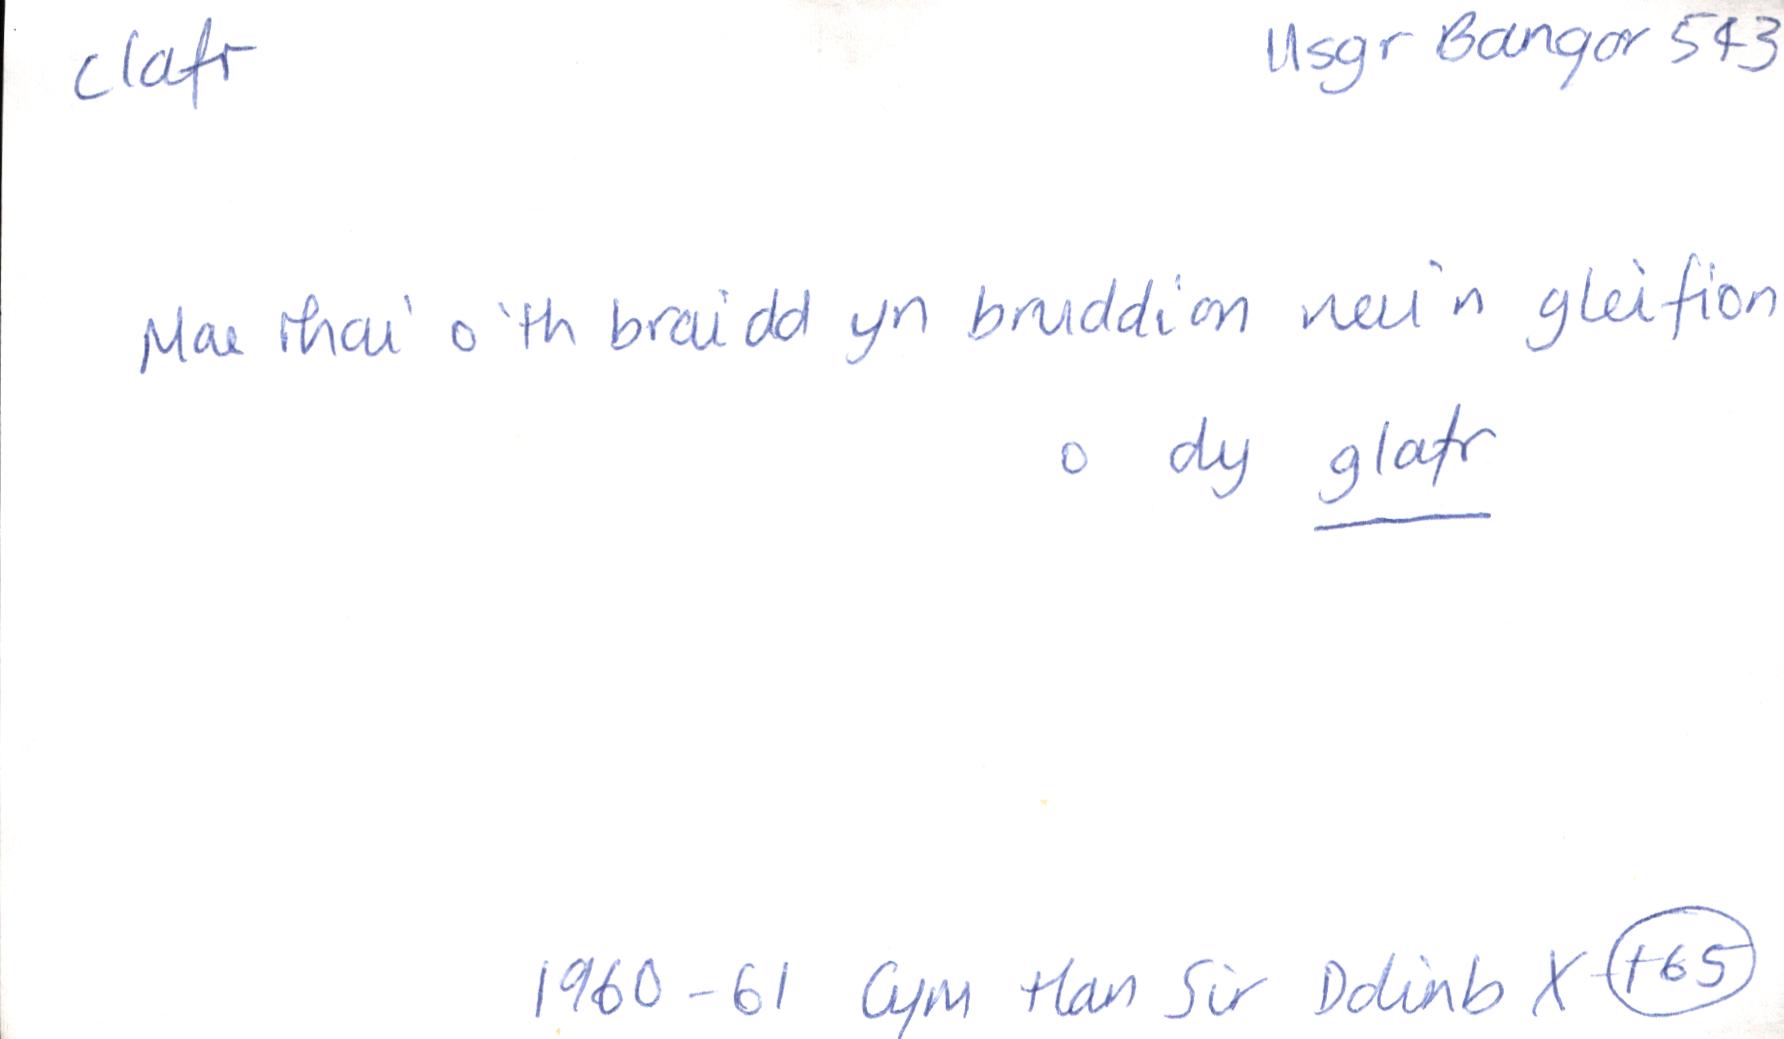 clafr Usgr Bangor 543
Mae rhai o'th braidd yn bruddion neu'n gleifion
o dy glafr
1960-61 Cym Han Sir Ddinb X 165